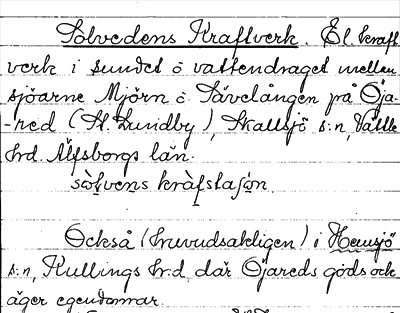 Solvedens Kraftverk. El. kraft
verk i sundet o vattendraget mellan
sjöarne Mjörn o Sävelången på Öja-
-red (St. Lundby), Skallsjö s:n, Vättle
hrd. Älfsborgs län.
Också (huvudsakligen) i Hemsjö
s:n, Kullings h:d, där Öjareds gods ock
äger egendomar.